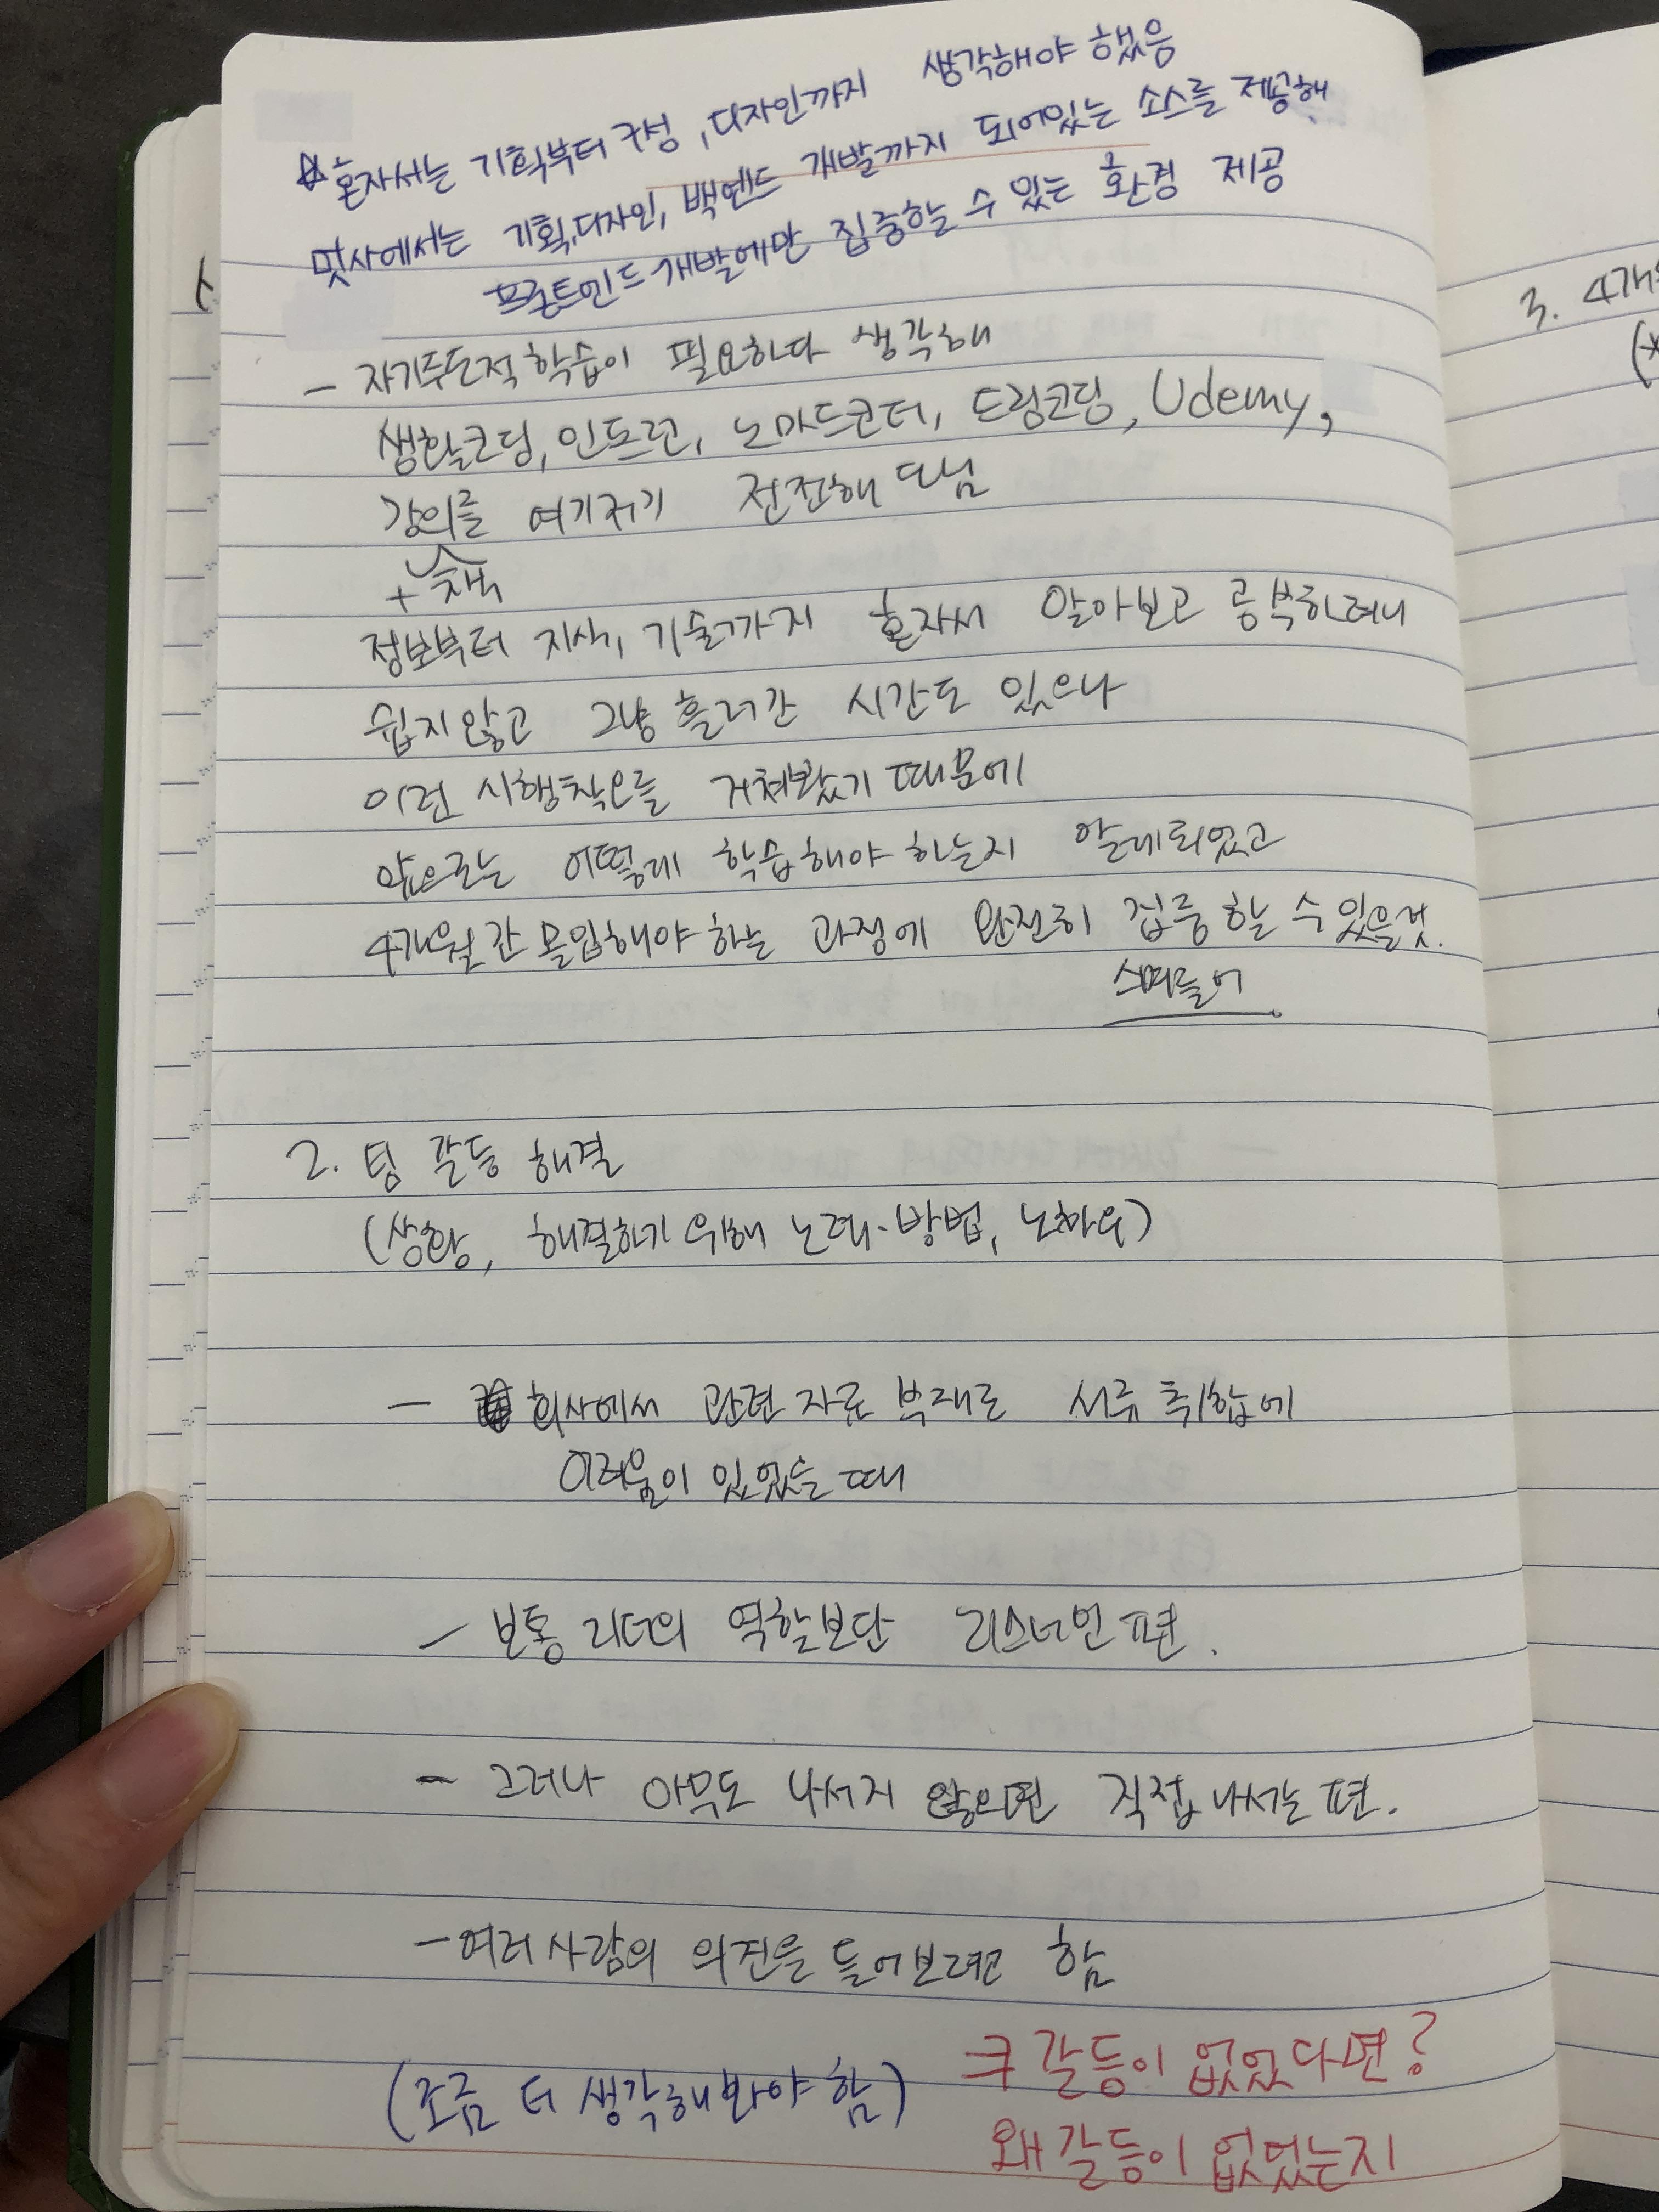 ☆ 혼자서는 기획부터 구성, 디자인까지 생각해야 했음
멋사에서는 기획, 디자인, 백엔드 개발까지 되어있는 소스를 제공해
프론트엔드 개발에만 집중할 수 있는 환경 제공
- 자기주도적 학습이 필요하다 생각해
생활코딩, 인프런, 노마드코더, 드림코딩, Udemy,
강의를 여기저기 전전해 다님
+ 책
정보부터 지식, 기술까지 혼자서 알아보고 공부하려니
쉽지않고 그냥 흘러간 시간도 있으나
이런 시행착오를 거쳐봤기 때문에
앞으로는 어떻게 학습해야 하는지 알게되었고
4개월간 몰입해야 하는 과정에 완전히 집중할 수 있을것.
스며들어
2. 팀 갈등 해결
(상황, 해결하기 위해 노력·방법, 노하우)
- 회사에서 관련 자료 부재로 서류 취합에
어려움이 있었을 때
- 보통 리더의 역할보단 리스너인 편.
- 그러나 아무도 나서지 않으면 직접 나서는 편.
- 여러 사람의 의견을 들어보려고 함
(조금 더 생각해봐야 함)
큰 갈등이 없었다면?
왜 갈등이 없었는지
3. 4개